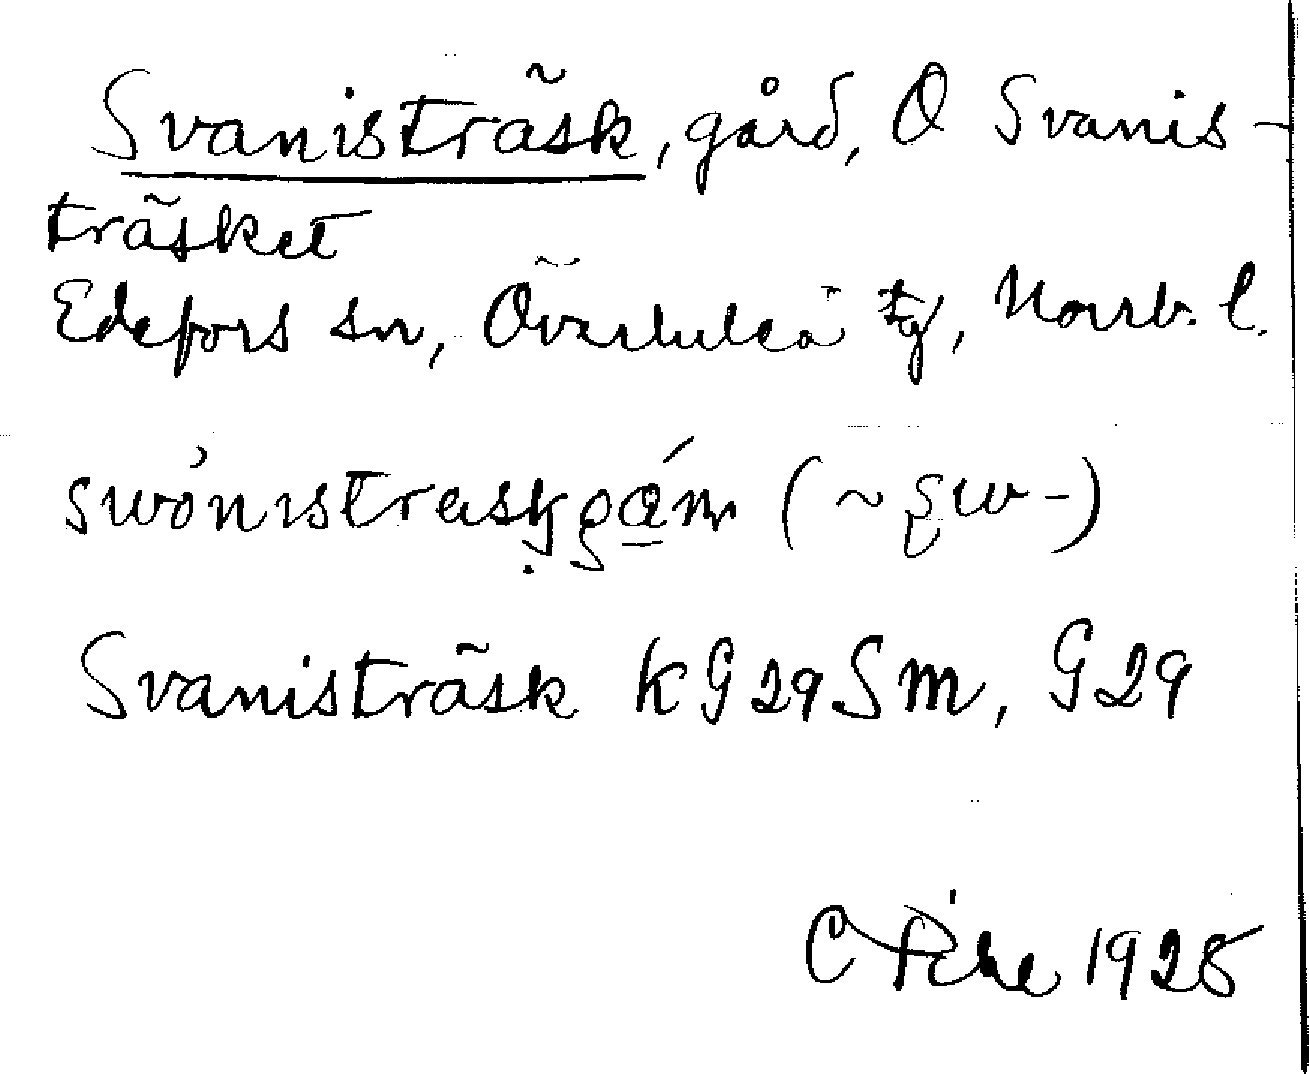 Svanisträsk, gård, O Svanis-
träsket
Edefors sn, Överluleå tg, Norrb. l.
Svanisträsk KG29Sm, G29
C Pihl 1925